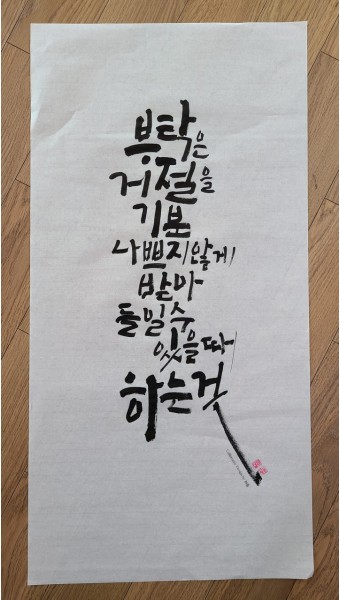 부탁은
거절을
기분
나쁘지 않게
받아
들일 수
있을 때
하는 것